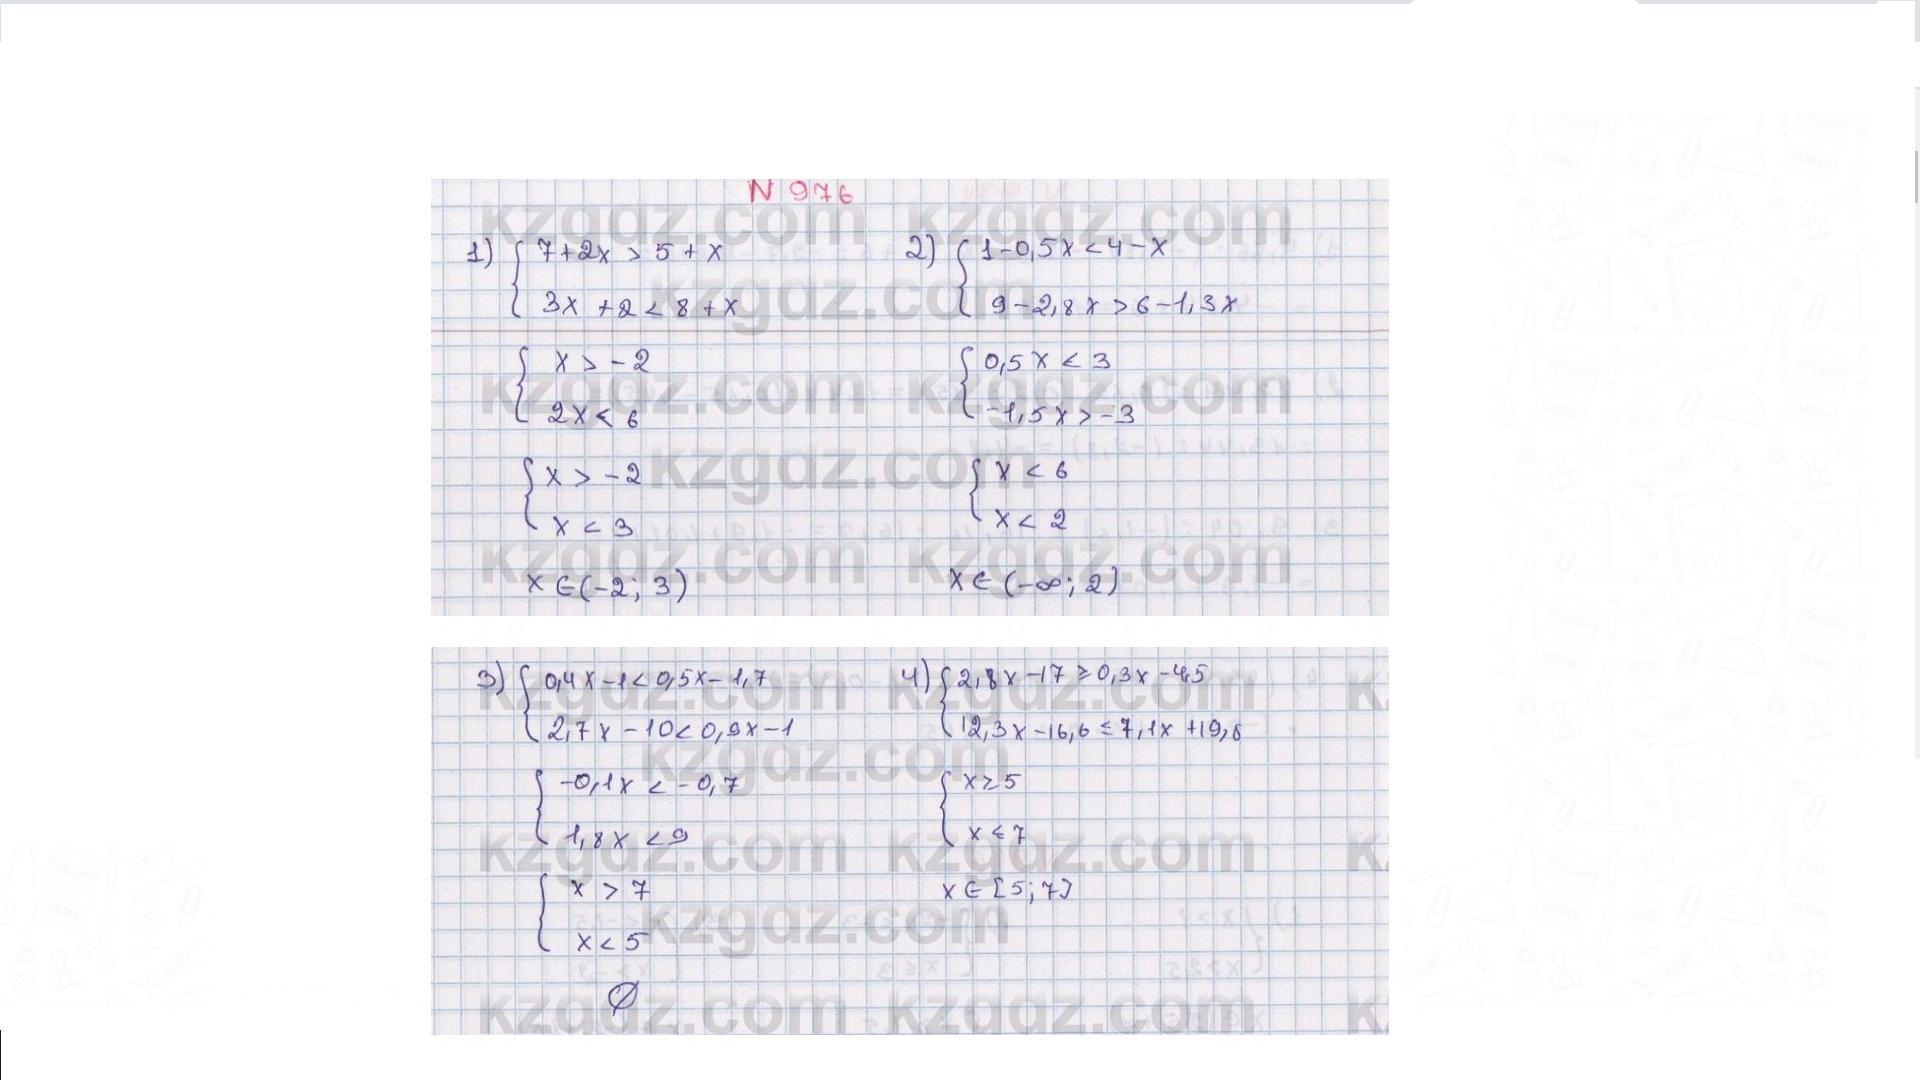 N 976
1) { 7+2x > 5+x
3x+2 < 8+x
{ x > -2
2x < 6
{ x > -2
x < 3
x ∈ (-2; 3)
2) { 1-0,5x < 4-x
9-2,8x > 6-1,3x
{ 0,5x < 3
-1,5x > -3
{ x < 6
x < 2
x ∈ (-∞; 2)
3) { 0,4x-1 < 0,5x-1,7
2,7x-10 < 0,9x-1
{ -0,1x < -0,7
1,8x < 9
{ x > 7
x < 5
∅
4) { 2,8x-17 ≥ 0,3x-4,5
12,3x-16,6 ≤ 7,1x+19,8
{ x ≥ 5
x ≤ 7
x ∈ [5; 7]
kzgdz.com kzgdz.com
kzgdz.com
kzgdz.com kzgdz.com
kzgdz.com
kzgdz.com kzgdz.com
kzgdz.com kzgdz.com
kzgdz.com
kzgdz.com kzgdz.com
kzgdz.com
kzgdz.com kzgdz.com